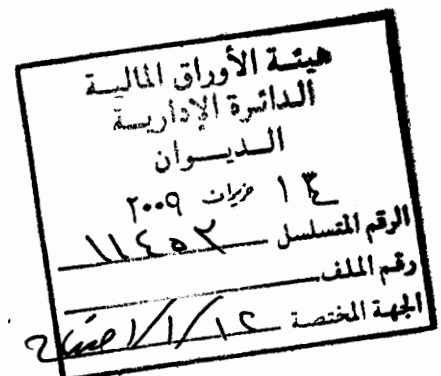 هيئة الأوراق المالية
الدائرة الإدارية
الديوان
١٤ حزيران ٢٠٠٩
الرقم المتسلسل ١١٤٥٢
رقم الملف
الجهة المختصة ١٢/١/١